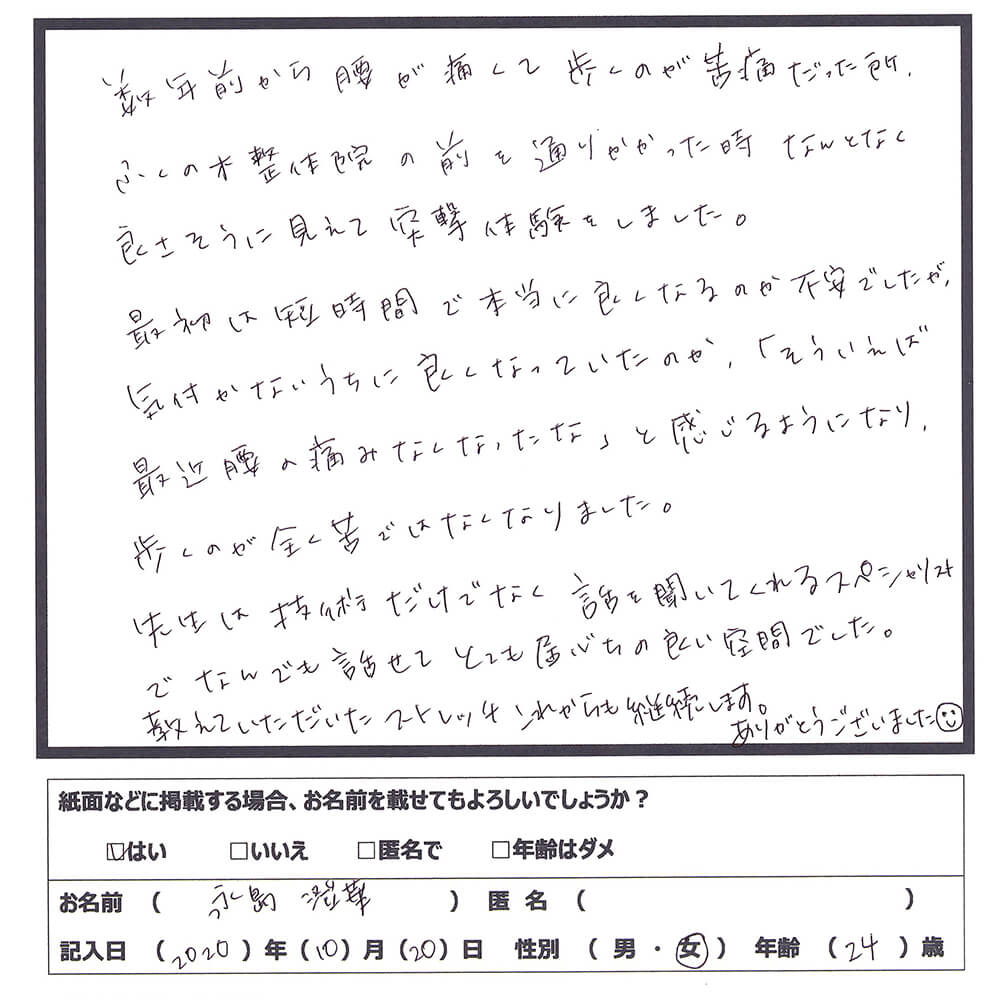 数年前から腰が痛くて歩くのが苦痛だった所、
ふくの木整体院の前を通りかかった時なんとなく
良さそうに見えて突撃体験をしました。
最初は短時間で本当に良くなるのか不安でしたが、
気付かないうちに良くなっていたのか、「そういえば
最近腰の痛みなくなったな」と感じるようになり、
歩くのが全く苦ではなくなりました。
先生は技術だけでなく話を聞いてくれるスペシャリスト
でなんでも話せてとても居心ちの良い空間でした。
教えていただいたストレッチこれからも継続します。
ありがとうございました
紙面などに掲載する場合、お名前を載せてもよろしいでしょうか？
☑はい □いいえ □匿名で □年齢はダメ
お名前 （ 永島 澄華 ） 匿 名 （ ）
記入日 （2020）年（10）月（20）日 性別 （ 男 ・ 女 ） 年齢 （ 24 ）歳